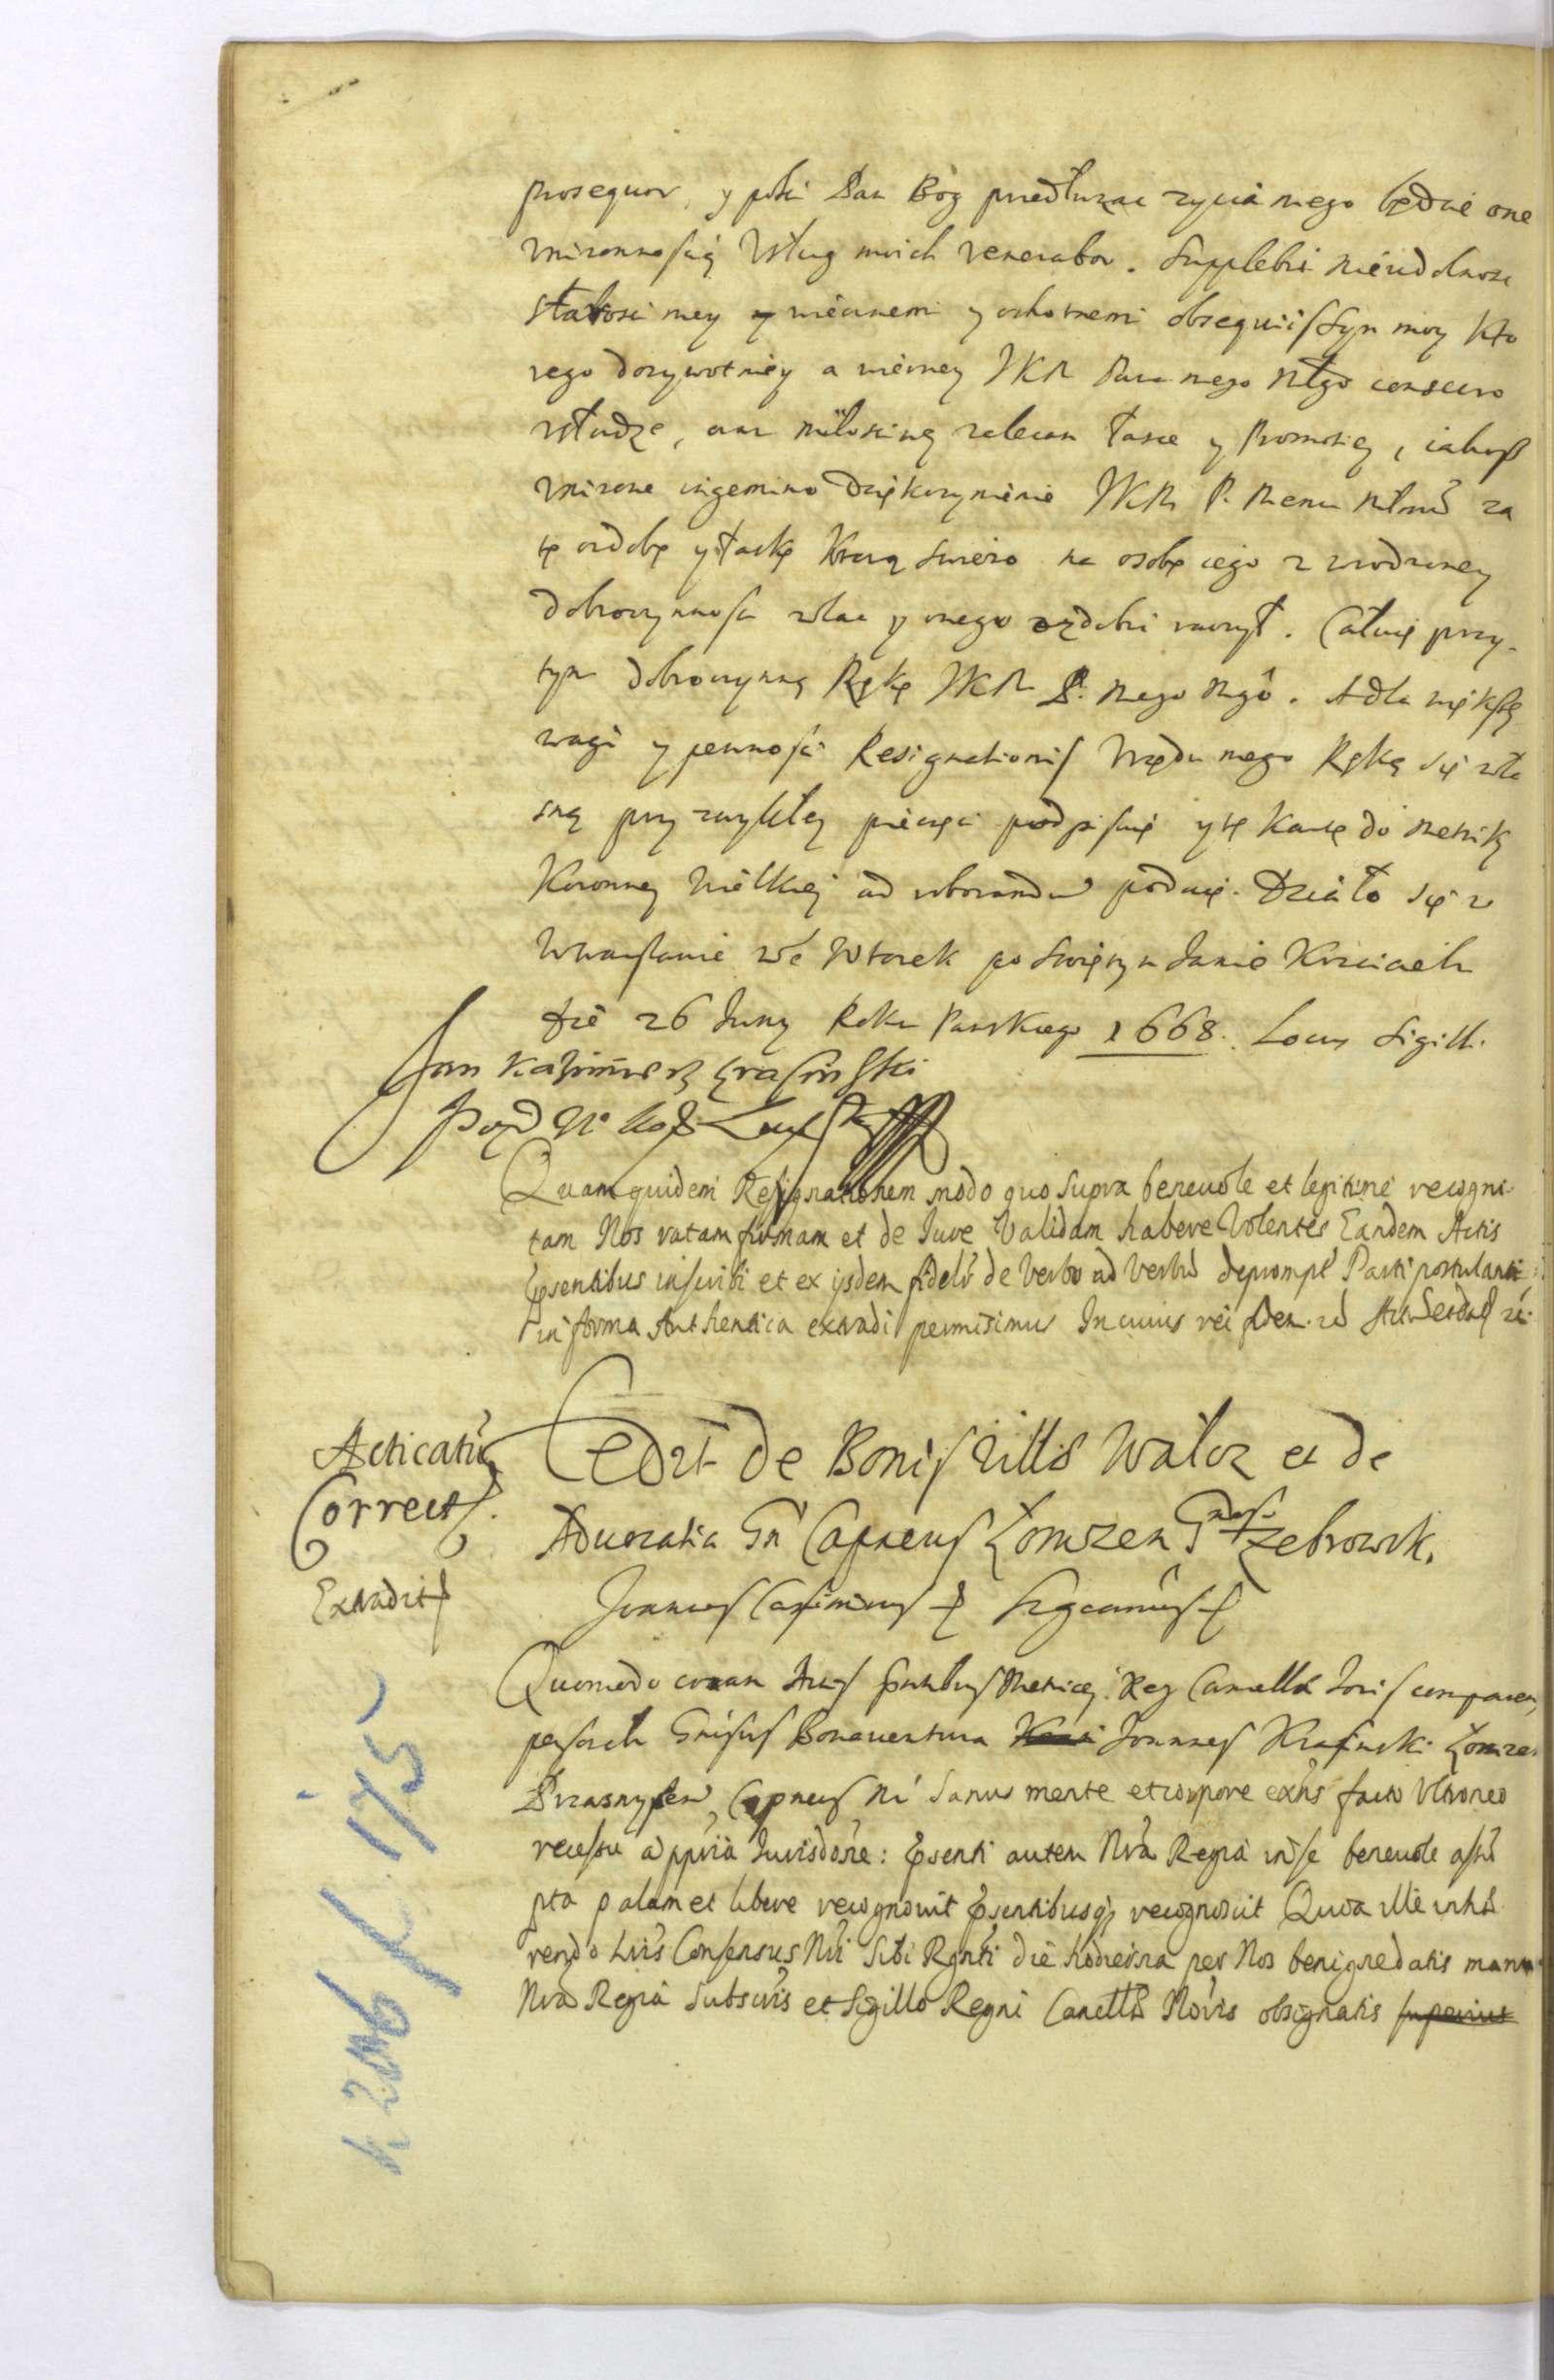 prosequor, y poki Pan Bóg przedłuzac zycia mego będzie one
vnizonnoscią Vsług moich venerabor. Supplebit nieudolnosc
słabosci mey y wiecznemi y ochotnemi obsequiis Syn moy kto
rego dozywotniey a wierney WKM Pana mego Młgo consecro
usłudze, oraz miłosciwey zalecam łasce y Promotiey, iakosz
vnizone ingemino dziękczynienie WKM P. memu Młmu za
tę ozdobę y łaskę Krorą swiezo na osobę iego z wrodzoney
dobroczynnosci wlac y onego ozdobić raczył. Całuię przy
tym dobroczynną Rękę WKM P. mego Mgo. A dla większey
wagi y pewnosci Resignationis Vrzędu mego Ręką się wła
sną przy zwykłey pieczęci podpisuię y tę Kartę do Metriki
Koronney Wielkiey ad roborandum podaię. Działo się w
Warszawie we Wtorek po Swiętym Janie Krzcicielu
die 26 Juny Roku Panskiego 1668. Locus Sigilli.
Jan Kazimierz Krasinski
Pod W° Kor
Quamquidem Resignationem modo quo supra benevole et legitime recogni
tam Nos ratam firmam et de Jure Validam habere Volentes Eandem Actis
Psentibus inscribi et ex ijsdem fideli de Verbo ad Verbu depromp Parti postulanti
in forma Authentica extradi permisimus In cuius rei fidem
Acticatu
Correct
Extradit
de Bonis Villis et de
Advocatia Gn Capneus Łomzen Zebrowsk.
Joannes Casimirus
Quomodo coram Actis psntibus Metrices Reg Cancellã comparen
personlr Gnosus Bonaventura Joannes Krasinski Łomzen
Prasnysen Capneus Ni Sanus mente et corpore exns facto Vltroneo
recessu a ppria Jurisdone: Psenti autem Nra Regia in se benevole assu
pta palam et libere recognovit Psentibusq recognoscit Quia ille inhæ
rendo Lris Consensus Nri Sibi Rgnti die hodierna per Nos benigne datis manu
Nra Regia Subscris et Sigillo Regni Cancellã Moris obsignatis superius
k 206 f. 175